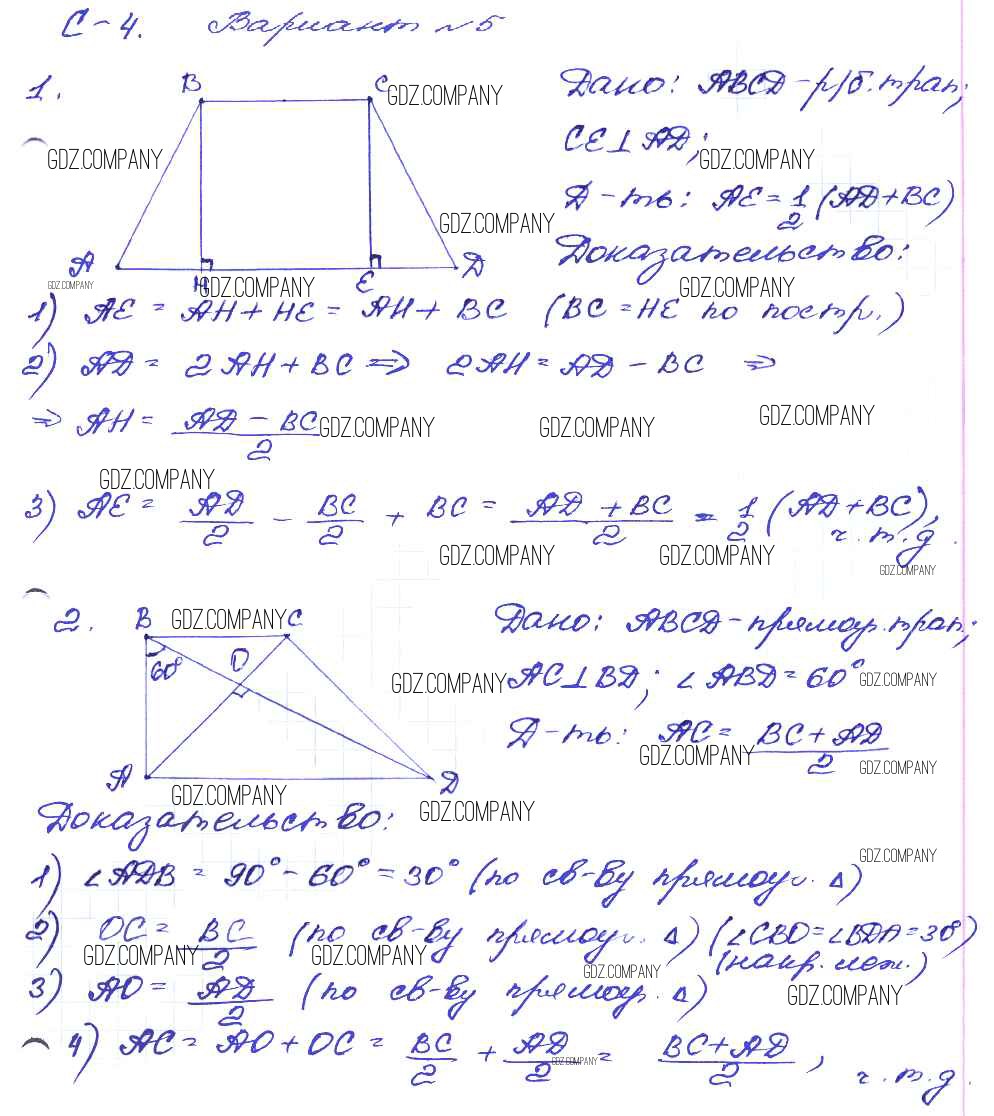 С-4. Вариант №5
1.
B
C
GDZ.COMPANY
Дано: ABCD - р/б. трап;
GDZ.COMPANY
CE⊥AD;
GDZ.COMPANY
GDZ.COMPANY
Д-ть: AE = 1/2 (AD+BC)
A
H
E
D
Доказательство:
GDZ.COMPANY
GDZ.COMPANY
GDZ.COMPANY
1) AE = AH + HE = AH + BC (BC = HE по постр.)
2) AD = 2AH + BC ⇒ 2AH = AD - BC ⇒
⇒ AH = (AD - BC)/2
GDZ.COMPANY
GDZ.COMPANY
GDZ.COMPANY
GDZ.COMPANY
3) AE = AD/2 - BC/2 + BC = (AD + BC)/2 = 1/2 (AD+BC),
ч.т.д.
GDZ.COMPANY
GDZ.COMPANY
GDZ.COMPANY
2.
B
GDZ.COMPANY
C
60°
O
A
D
Дано: ABCD - прямоуг. трап.;
GDZ.COMPANY
AC⊥BD; ∠ABD = 60°
GDZ.COMPANY
Д-ть: AC = (BC + AD)/2
GDZ.COMPANY
GDZ.COMPANY
GDZ.COMPANY
GDZ.COMPANY
Доказательство:
GDZ.COMPANY
1) ∠ADB = 90° - 60° = 30° (по св-ву прямоуг. Δ)
2) OC = BC/2 (по св-ву прямоуг. Δ) (∠CBO = ∠BDA = 30°)
(накр. леж.)
GDZ.COMPANY
GDZ.COMPANY
GDZ.COMPANY
3) AO = AD/2 (по св-ву прямоуг. Δ)
GDZ.COMPANY
4) AC = AO + OC = BC/2 + AD/2 = (BC+AD)/2,
GDZ.COMPANY
ч.т.д.